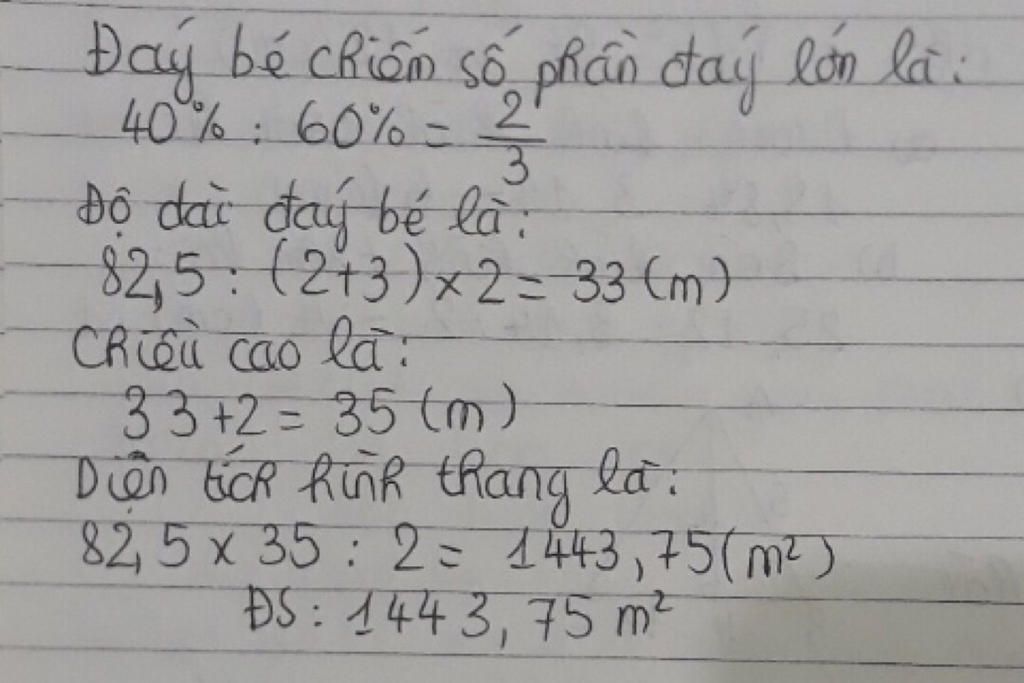 Đáy bé chiếm số phần đáy lớn là:
40% : 60% = 2/3
Độ dài đáy bé là:
82,5 : (2+3) × 2 = 33 (m)
Chiều cao là:
33 + 2 = 35 (m)
Diện tích hình thang là:
82,5 × 35 : 2 = 1443,75 (m²)
ĐS: 1443,75 m²